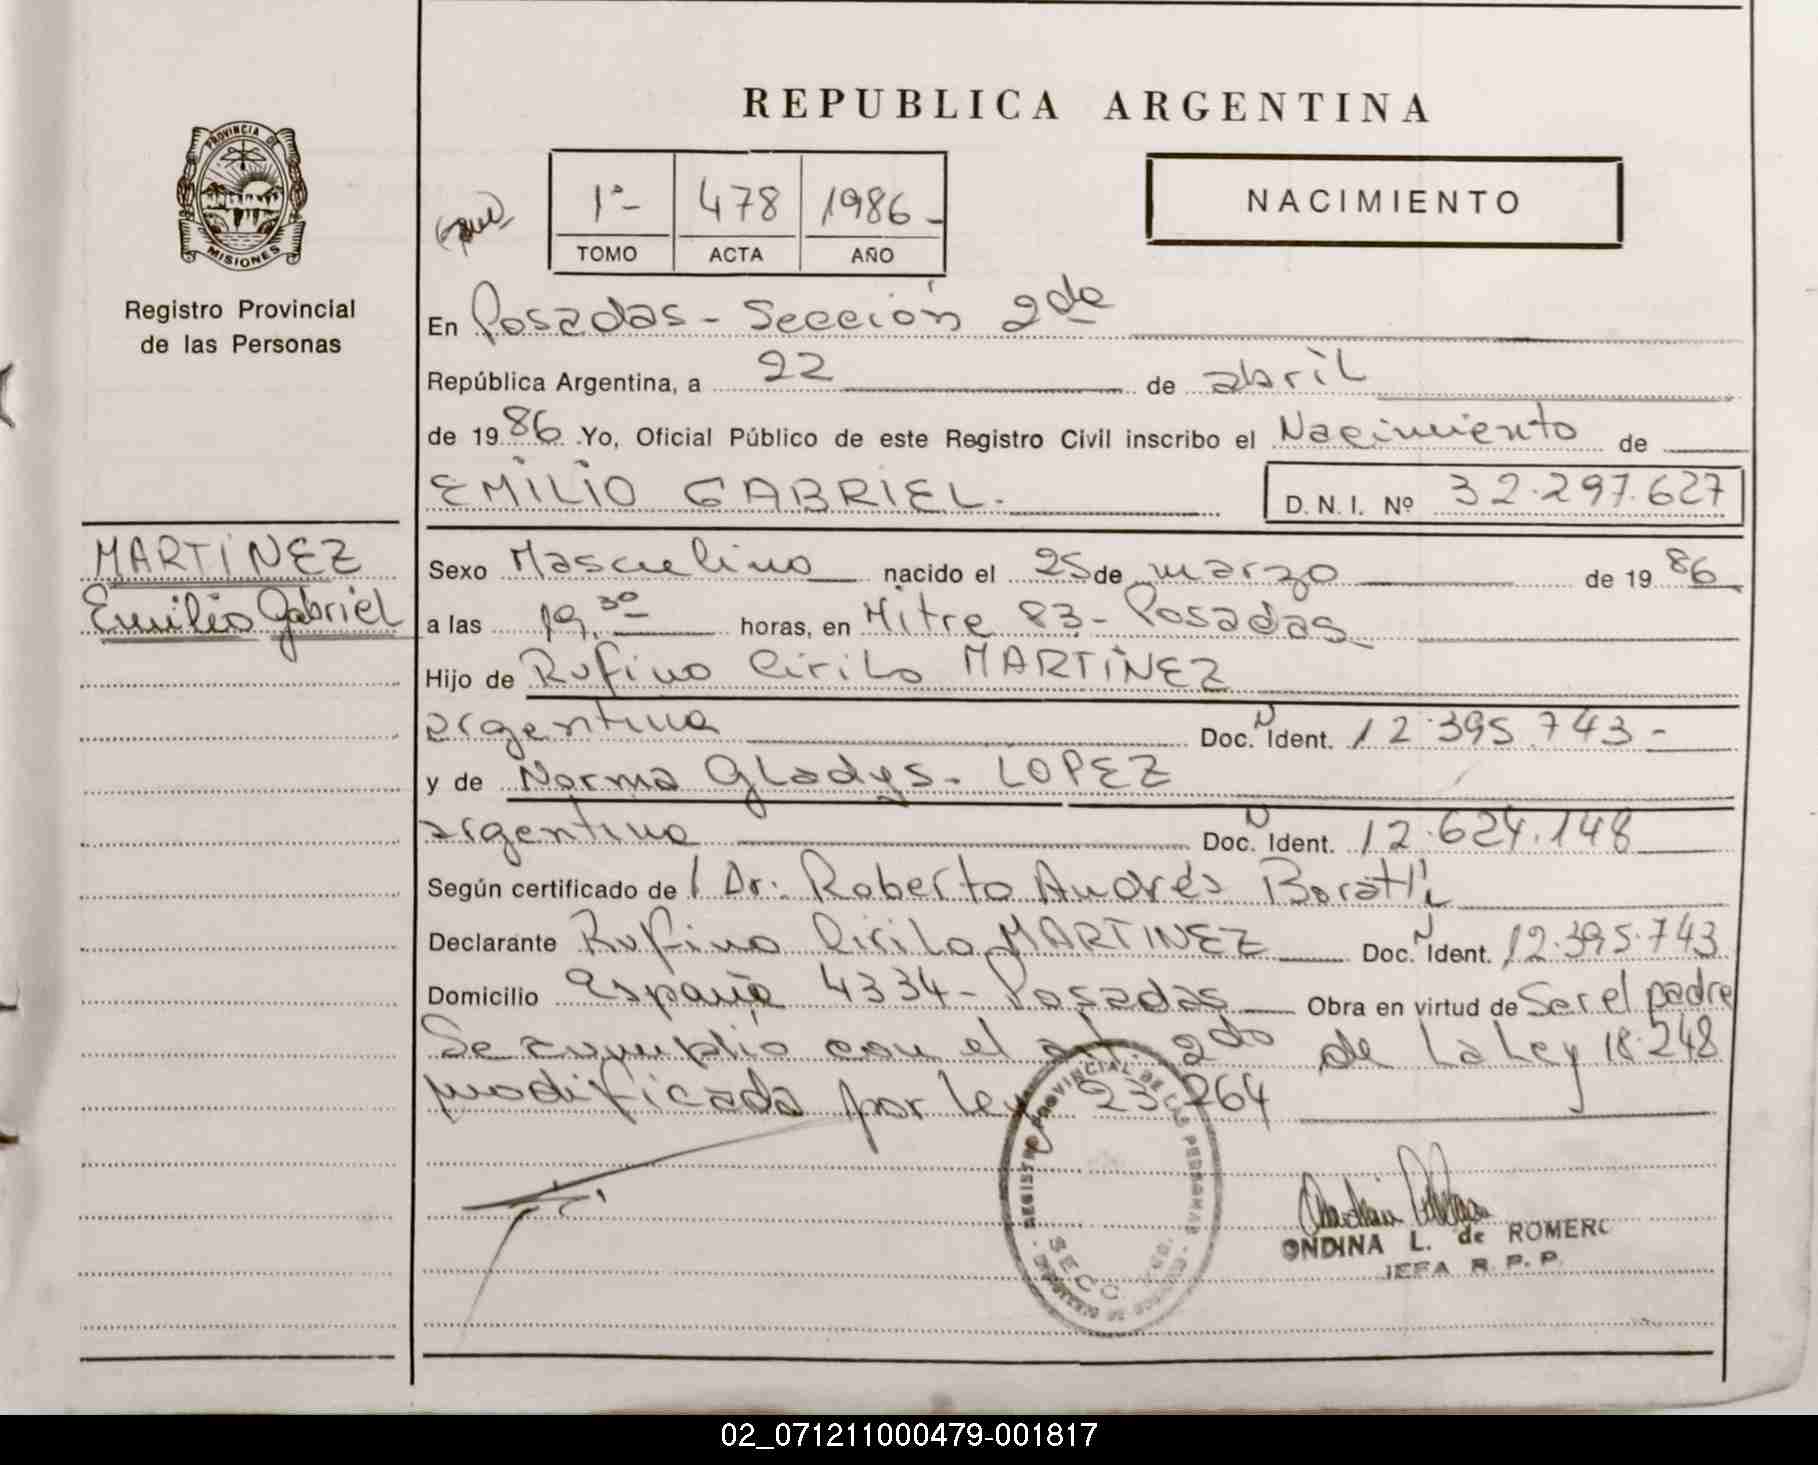 REPUBLICA ARGENTINA
PROVINCIA DE
MISIONES
Registro Provincial
de las Personas
1º- 478 1986-
TOMO ACTA AÑO
NACIMIENTO
En Posadas - Sección 2da
República Argentina, a 22 de abril
de 1986 Yo, Oficial Público de este Registro Civil inscribo el Nacimiento de
EMILIO GABRIEL.
D. N. I. Nº 32.297.627
MARTINEZ
Emilio Gabriel
Sexo Masculino nacido el 25 de marzo de 1986
a las 19,30 horas, en Mitre 83 - Posadas
Hijo de Rufino Cirilo MARTINEZ
argentina Doc. N Ident. 12.395.743-
y de Norma Gladys - LOPEZ
argentina Doc. N Ident. 12.624.148
Según certificado de l Dr: Roberto Andrés
Declarante Rufino Cirilo MARTINEZ Doc. N Ident. 12.395.743
Domicilio España 4334 - Posadas Obra en virtud de Ser el padre
Se cumplió con el art. 2do de la Ley 18.248
modificada por ley 23264
REGISTRO PROVINCIAL DE LAS PERSONAS
SECC
ONDINA L. de ROMERO
JEFA R. P. P.
02_071211000479-001817